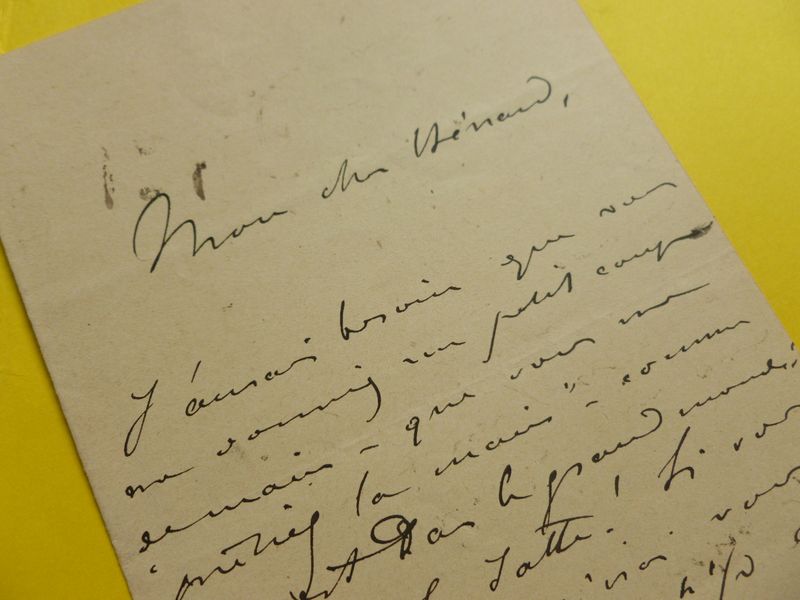 Mon cher Bénard,
J'aurais besoin que vous
me donniez un petit coup
de main – que vous me
"prêtiez la main" – comme
dans le grand monde,
Latte! Si vous
vous
n'y a